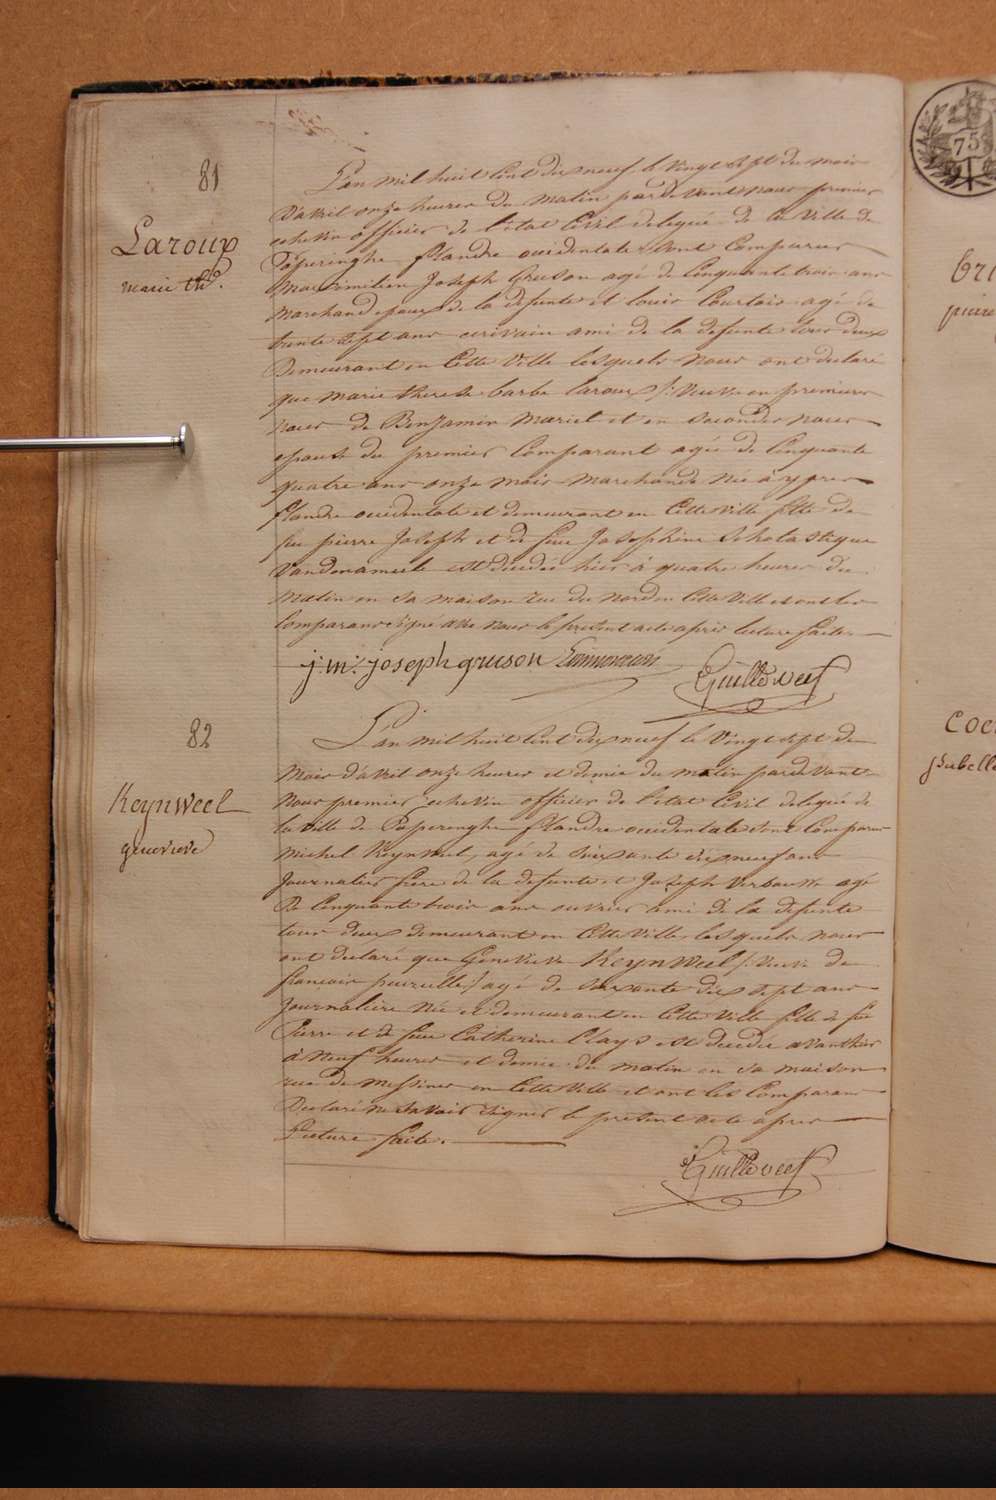 81
Laroux
marie thé.
L'an mil huit cent dix neuf le vingt sept du mois
d'avril onze heures du matin pardevant nous premier
echevin officier de l'état Civil delegué de la ville de
Poperinghe flandre occidentale sont Comparus
Maximilien Joseph Gruson agé de Cinquante trois ans
marchand epoux de la defunte et louis Courtois agé de
trente sept ans ecrivain ami de la defunte tous deux
Demeurant en Cette Ville lesquels nous ont declaré
que marie therese barbe laroux /: veuve en premieres
noces de Benjamin Mariel et en secondes noces
epouse du premier Comparant agée de Cinquante
quatre ans onze mois marchande née à ypres
flandre occidentale et demeurant en Cette ville fille de
feu pierre Joseph et de feue Josephine Scholastique
Vandenameele est décédée hier à quatre heures du
matin en sa maison rue du nord en Cette Ville et ont les
Comparans signé avec nous le present acte après lecture faite.
j: m: joseph gruson
Guilleweef
82
Keynweel
genevieve
L'an mil huit Cent dix neuf le vingt sept du
Mois d'avril onze heures et demie du matin pardevant
Nous premier echevin officier de l'état Civil delegué de
la ville de Poperinghe flandre occidentale sont Comparus
Michel Keynweel, agé de soixante dix neuf ans
Journalier frere de la defunte et Joseph Verbouw agé
De Cinquante trois ans ouvrier ami de la defunte
tous deux demeurant en Cette Ville lesquels nous
ont declaré que Genevieve Keynweel /: veuve de
francois pourcelle / agé de soixante dix sept ans
Journaliere Née et demeurant en Cette Ville fille de feu
Pierre et de feue Catherine Clays est décédée avanthier
à neuf heures et demie du matin en sa maison
rue de messines en Cette Ville et ont les Comparans
Declaré ne savoir signer le present acte après
Lecture faite.
Guilleweef
75